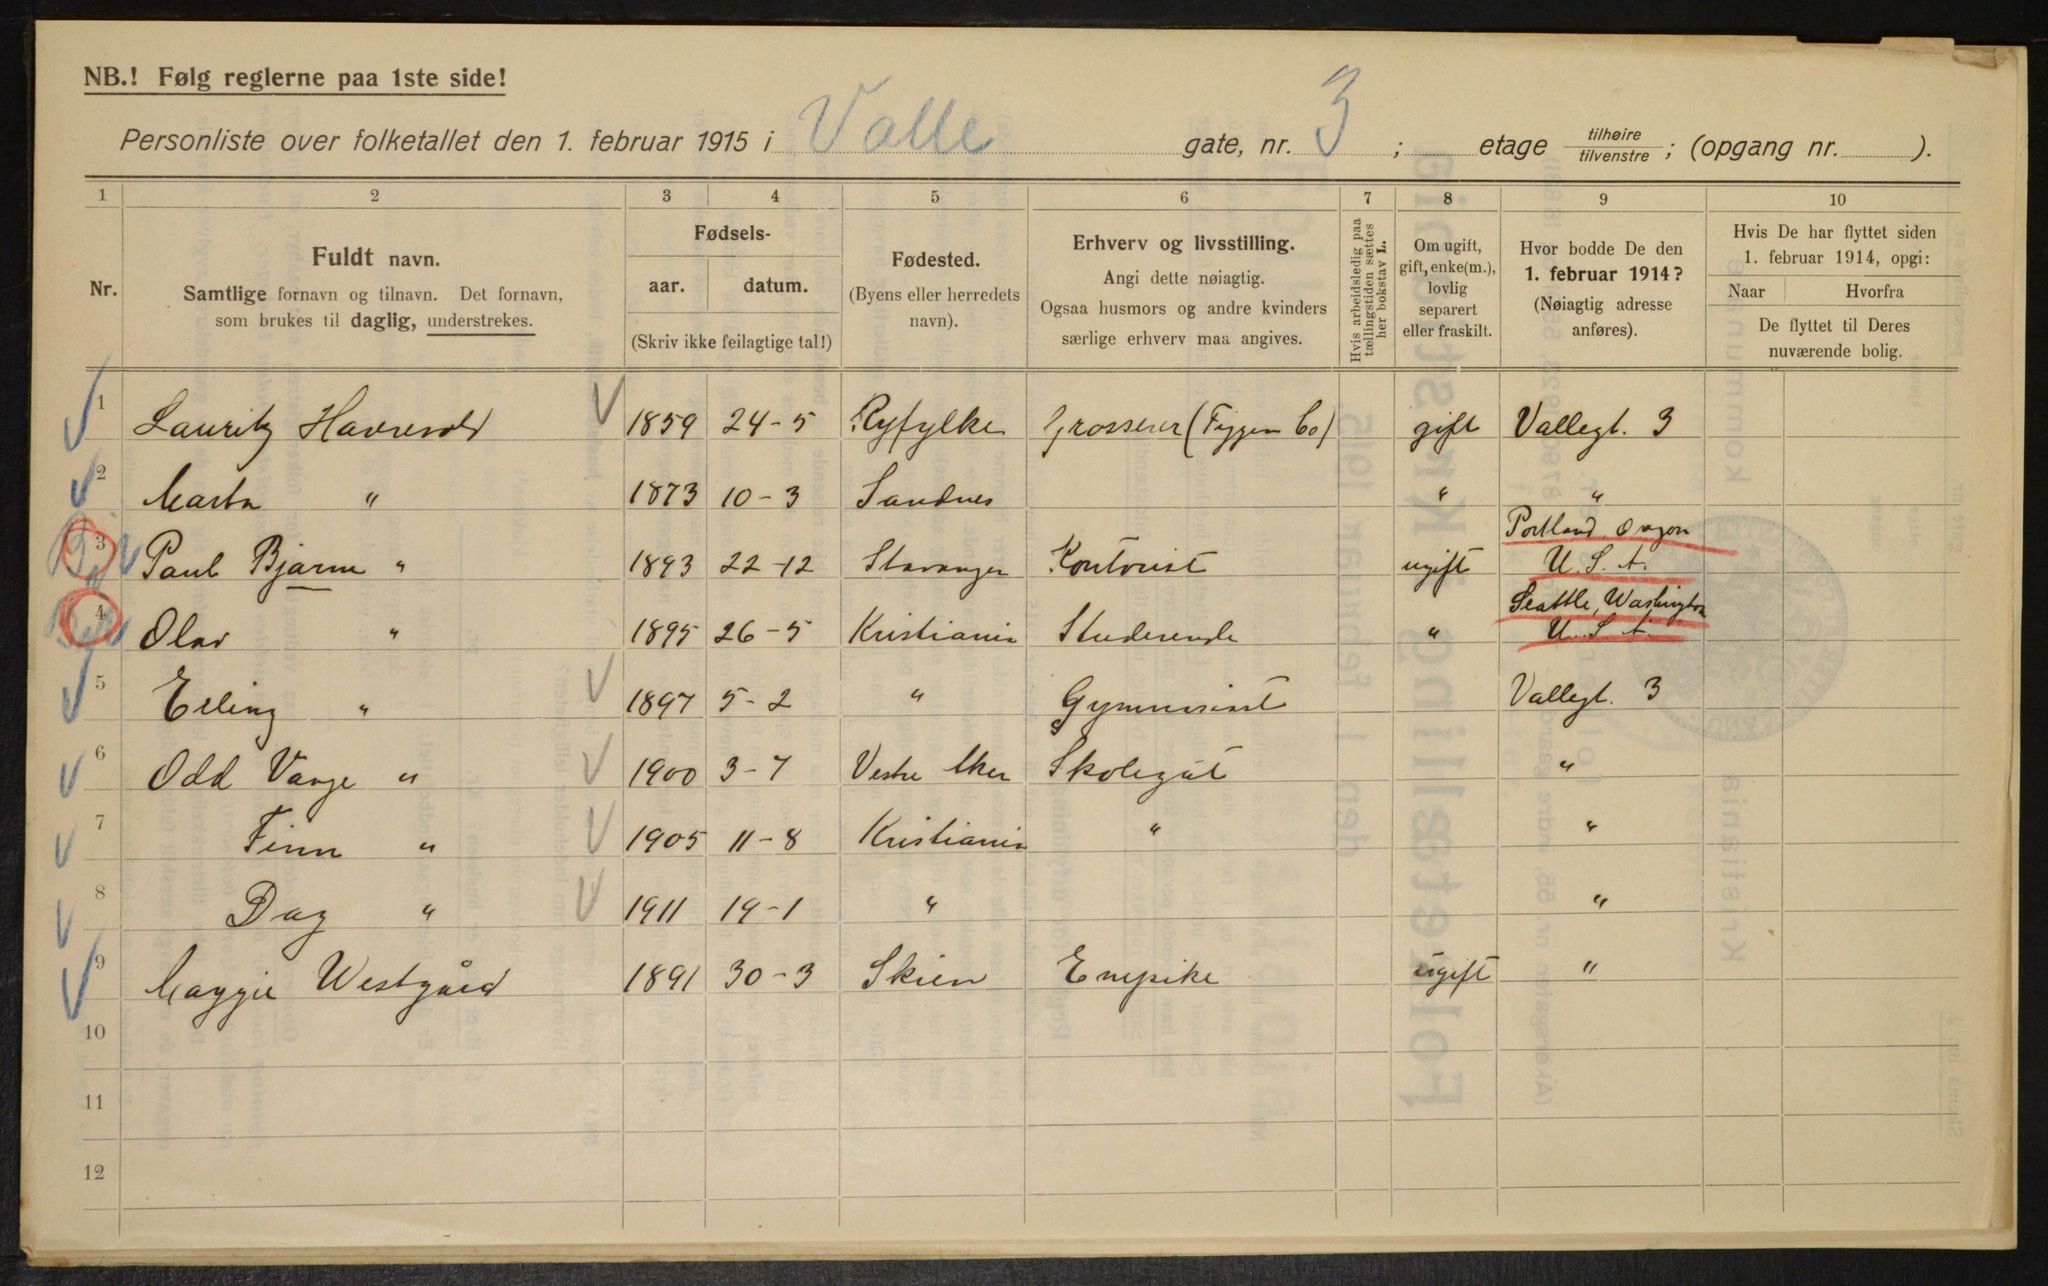 NB.! Følg reglerne paa 1ste side!
Personliste over folketallet den 1. februar 1915 i Valle gate, nr. 3 ; etage tilhøire tilvenstre ; (opgang nr. ).
1 2 3 4 5 6 7 8 9 10
Nr.
Fuldt navn.
Samtlige fornavn og tilnavn. Det fornavn,
som brukes til daglig, understrekes.
Fødsels-
aar. datum.
(Skriv ikke feilagtige tal!)
Fødested.
(Byens eller herredets
navn).
Erhverv og livsstilling.
Angi dette nøiagtig.
Ogsaa husmors og andre kvinders
særlige erhverv maa angives.
Hvis arbeidsledig paa
tællingstiden sættes
her bokstav L.
Om ugift,
gift, enke(m.),
lovlig
separert
eller fraskilt.
Hvor bodde De den
1. februar 1914?
(Nøiagtig adresse
anføres).
Hvis De har flyttet siden
1. februar 1914, opgi:
Naar Hvorfra
De flyttet til Deres
nuværende bolig.
1 Lauritz Havrevold 1859 24-5 Ryfylke Grosserer (Figgen Co) gift Vallegt. 3
2 Marta " 1873 10-3 Sandnes " "
3 Paul Bjarne " 1893 22-12 Stavanger Kontorist ugift Portland, Oregon U.S.A.
4 Olav " 1895 26-5 Kristiania Studerende " Seattle, Washington U.S.A.
5 Erling " 1897 5-2 " Gymnasiast Vallegt. 3
6 Odd Vange " 1900 3-7 Vestre Aker Skolegut "
7 Finn " 1905 11-8 Kristiania " "
8 Dag " 1911 19-1 " "
9 Maggie Westgård 1891 30-3 Skien Enepike ugift "
10
11
12